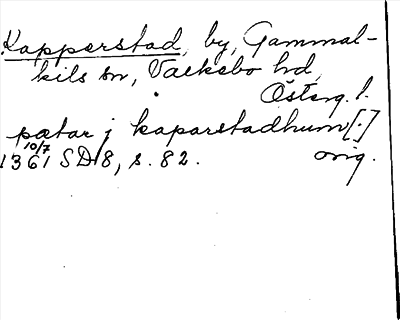 Kapperstad, by, Gammal-
kils sn, Valkebo hd,
Österg. l.
pætar j kaparstadhum [.]
1361 10/7 SD 8, s. 82. orig.